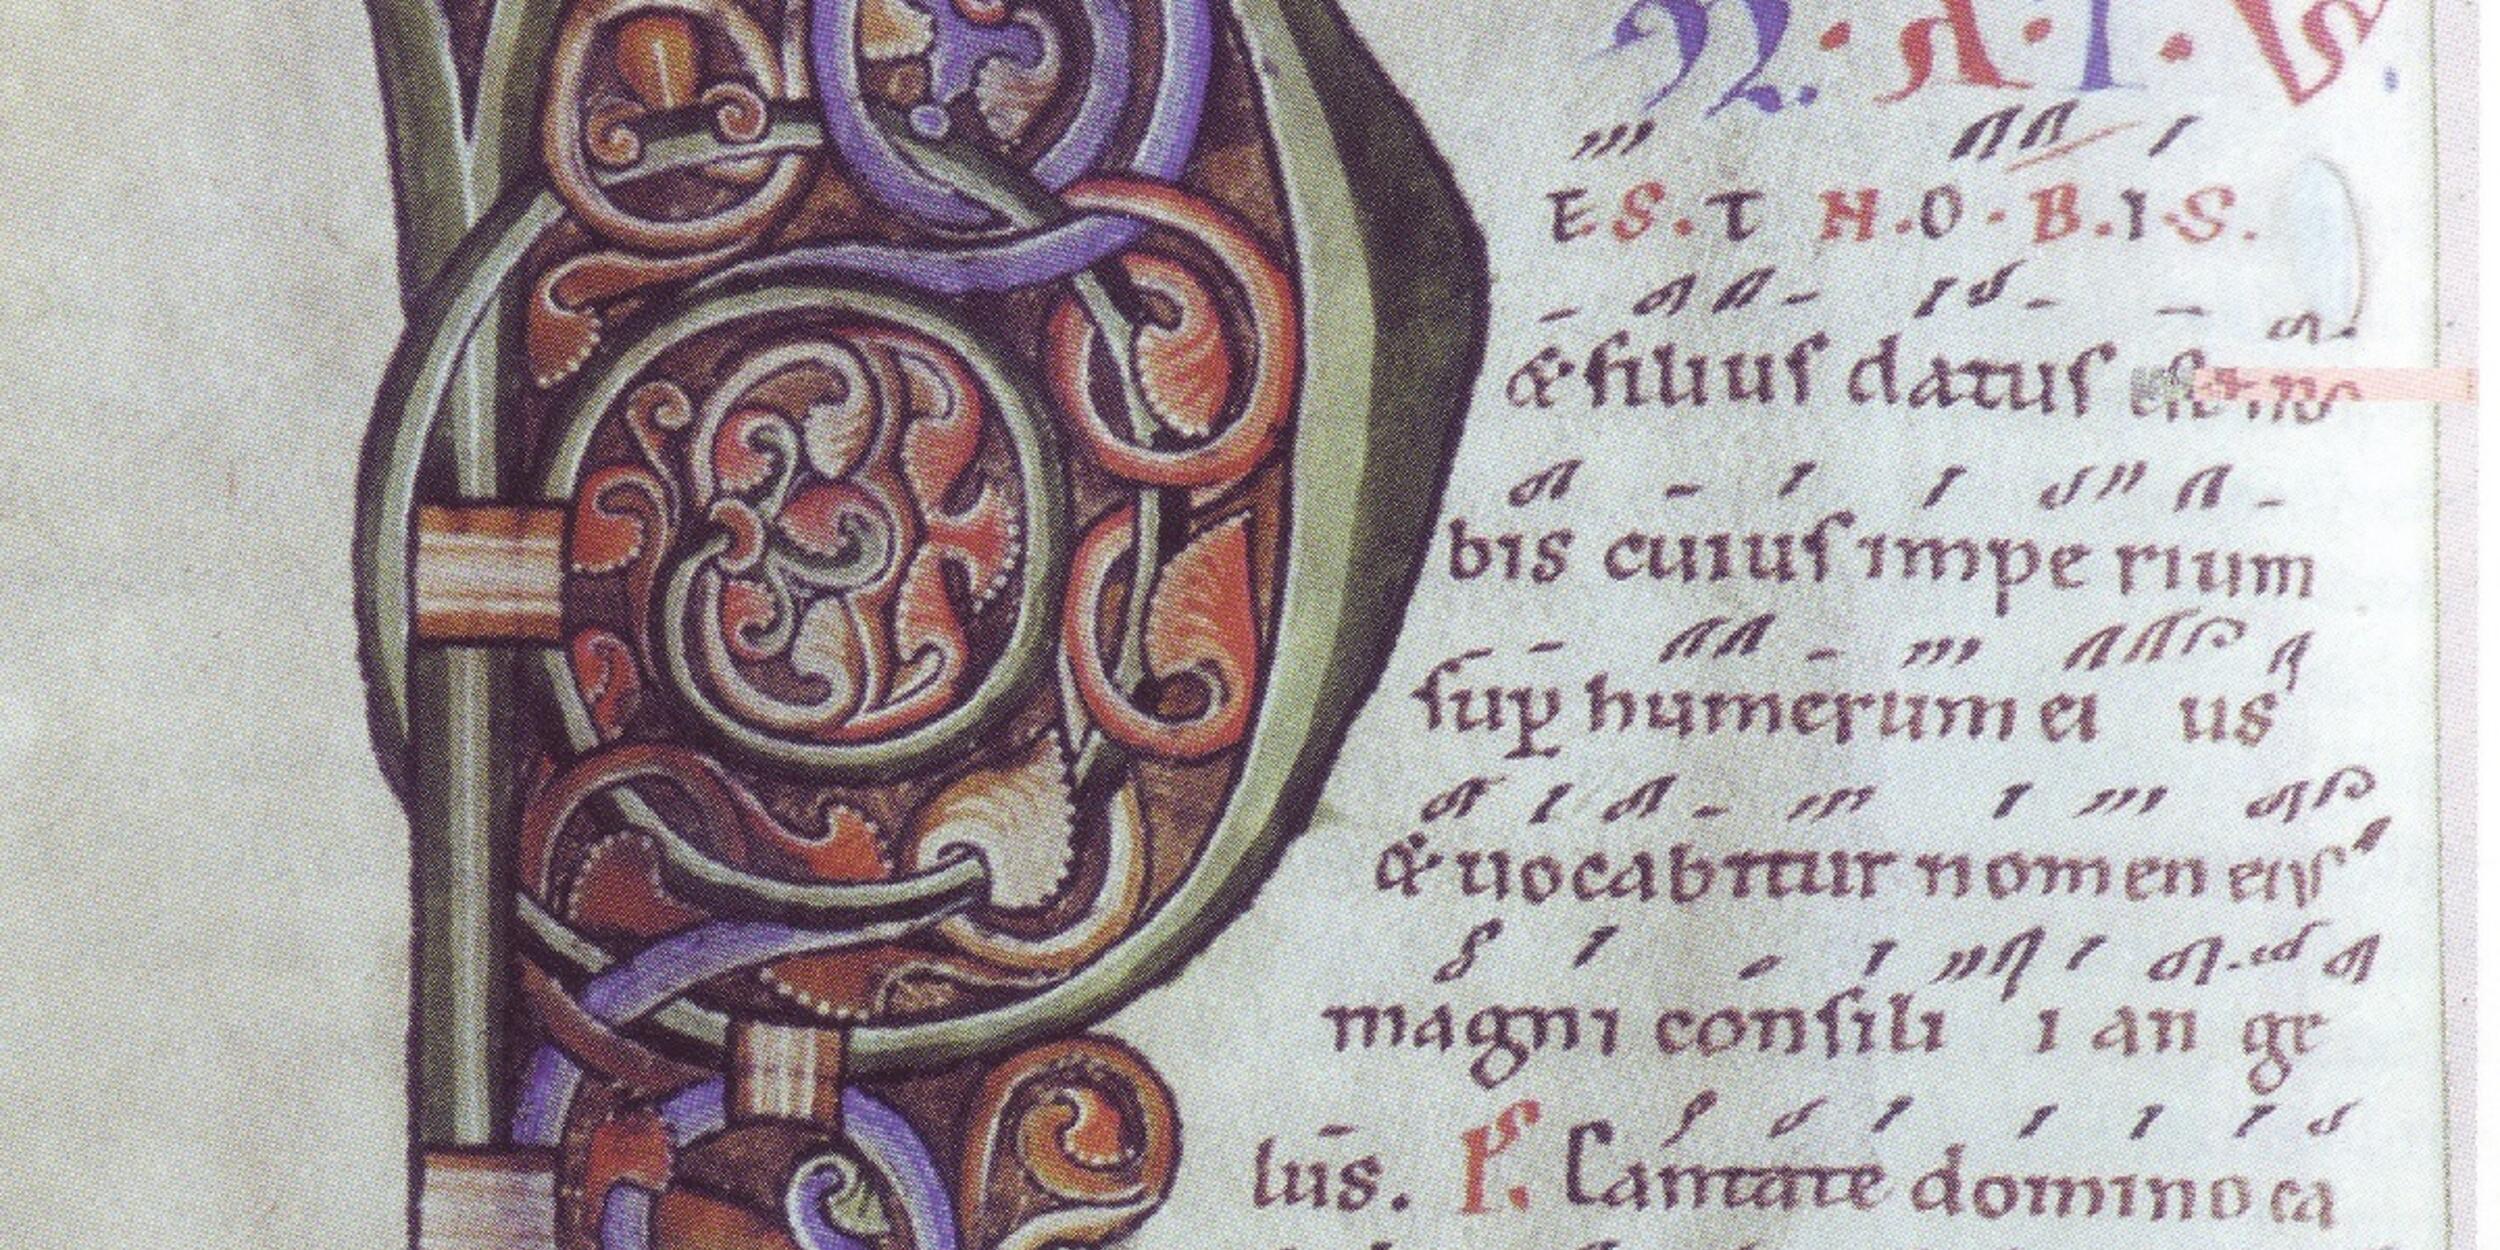 N·A·T·VS
E·S·T N·O·B·I·S·
& filius datus est no
bis cuius impe rium
sup humerum ei us
& uocabitur nomen eius
magni consili i an ge
lus. Ps. Cantate domino ca